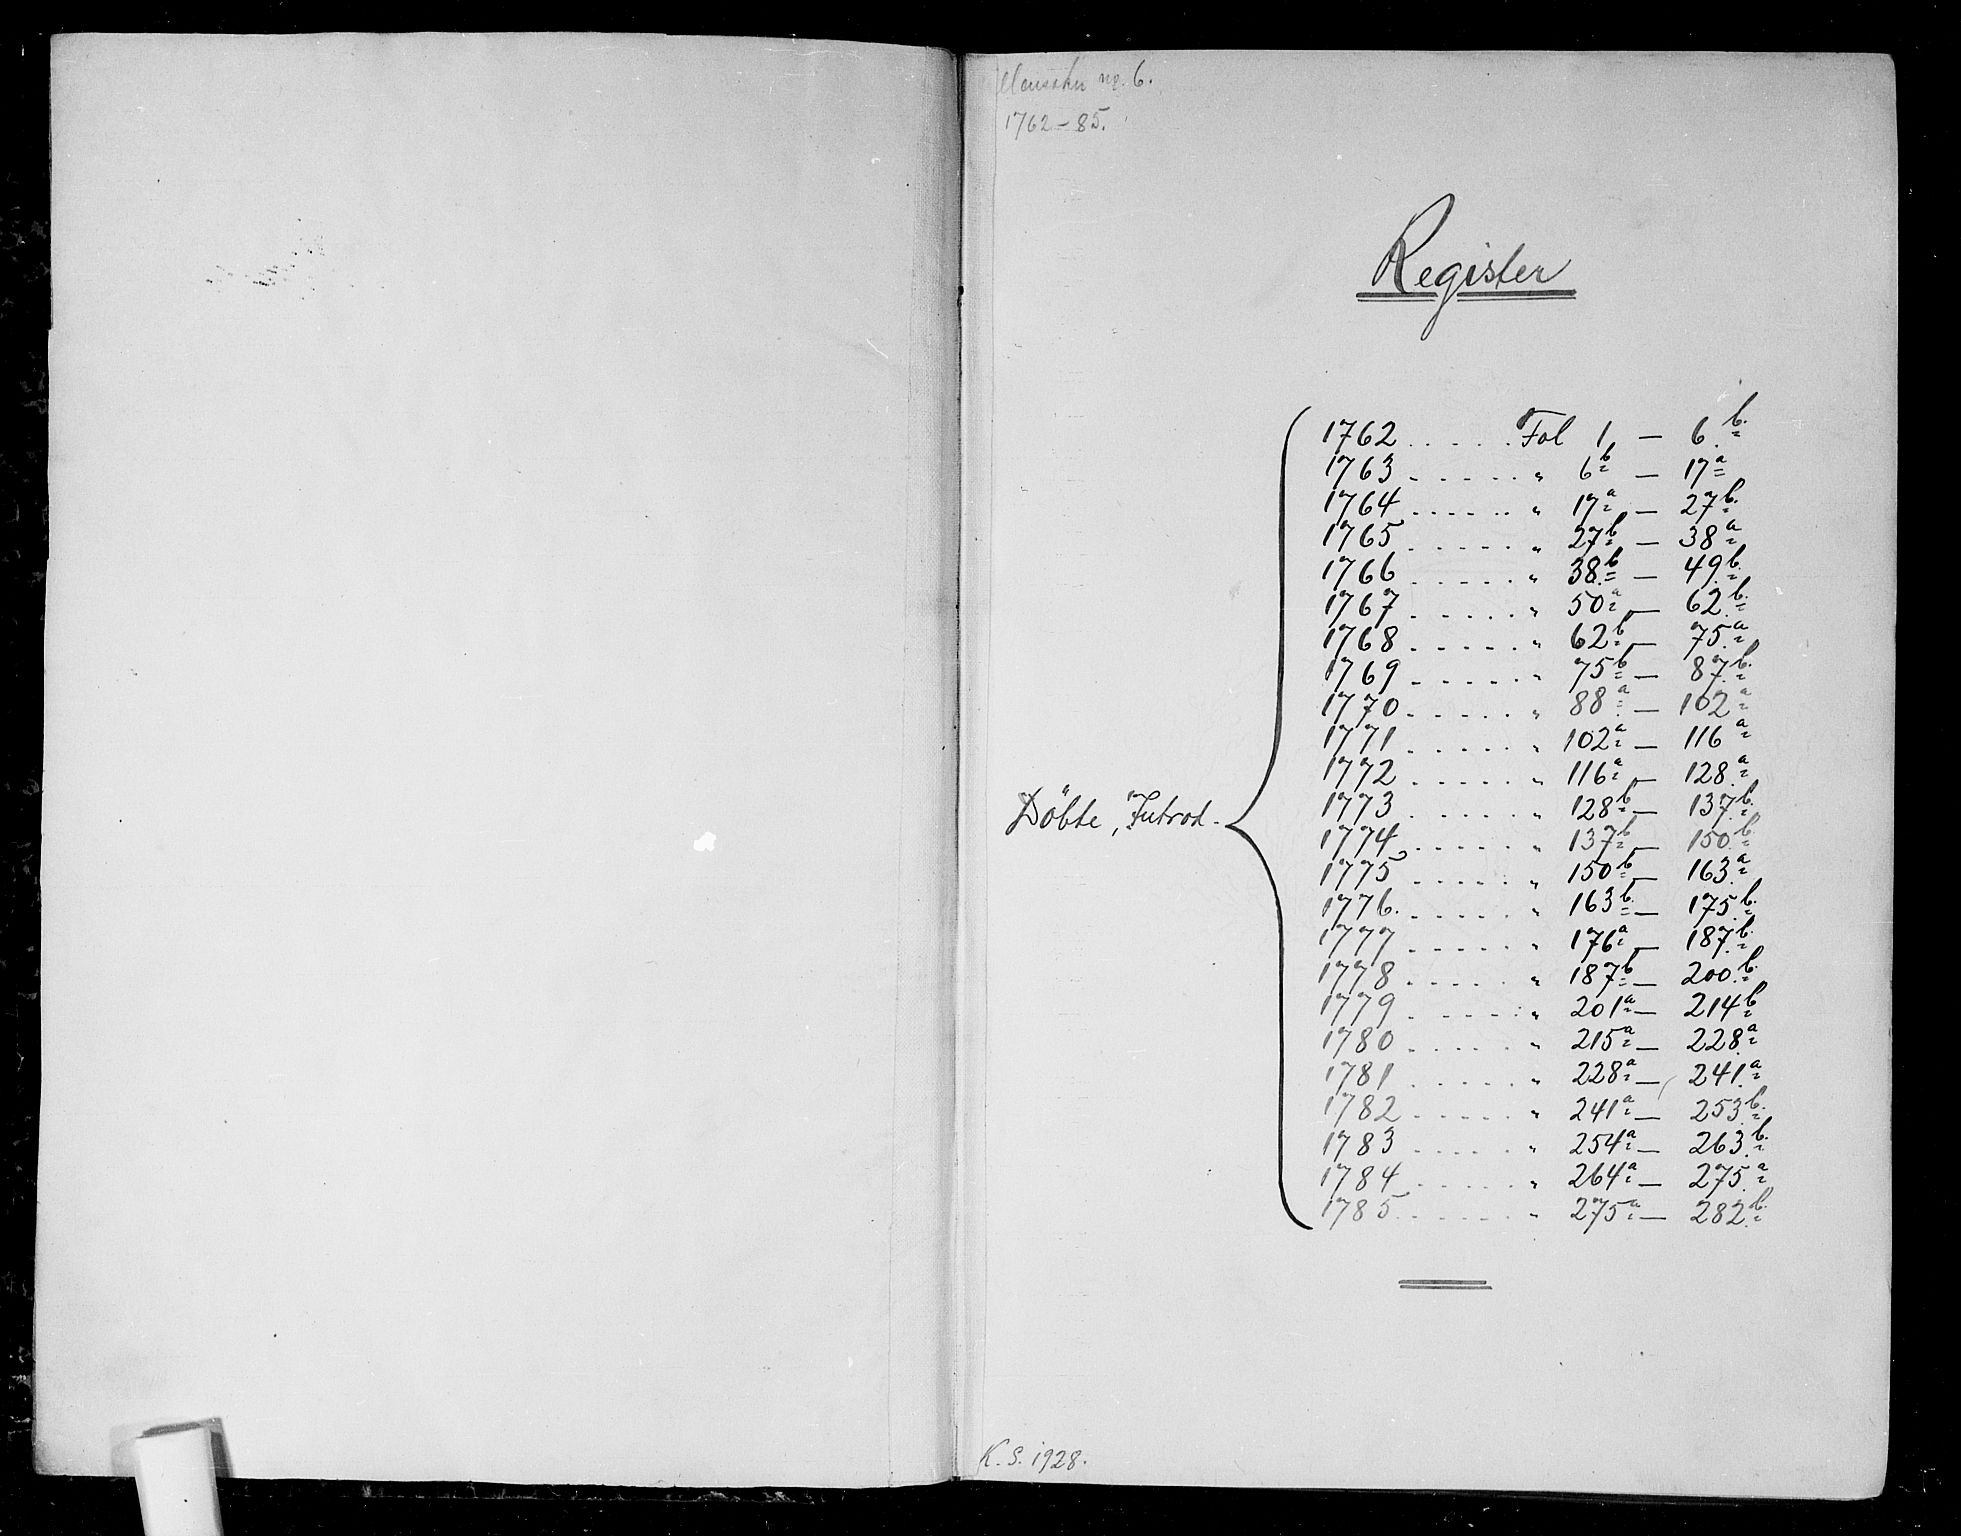 nr. 6.
1762–85.
Register
Döbte, Introd.
1762 . . . . . Fol 1 — 6.b.
1763 . . . . . " 6b — 17a
1764 . . . . . " 17a — 27b.
1765 . . . . . " 27b — 38a
1766 . . . . . " 38.b — 49.b.
1767 . . . . . " 50a — 62.b.
1768 . . . . . " 62b — 75.a
1769 . . . . . " 75b — 87.b.
1770 . . . . . " 88a — 102a
1771 . . . . . " 102a — 116a
1772 . . . . . " 116a — 128.a
1773 . . . . . " 128b — 137.b.
1774 . . . . . " 137b — 150.b.
1775 . . . . . " 150b — 163.a
1776. . . . . . " 163b. — 175.b.
1777 . . . . . " 176a — 187.b.
1778 . . . . . " 187b — 200.b.
1779 . . . . . " 201a — 214b
1780 . . . . . " 215a — 228a
1781 . . . . . " 228a — 241.a
1782 . . . . . " 241a — 253.b.
1783 . . . . . " 254a — 263.b.
1784 . . . . . " 264a — 275.a
1785 . . . . . " 275a — 282.b.
K. S. 1928.